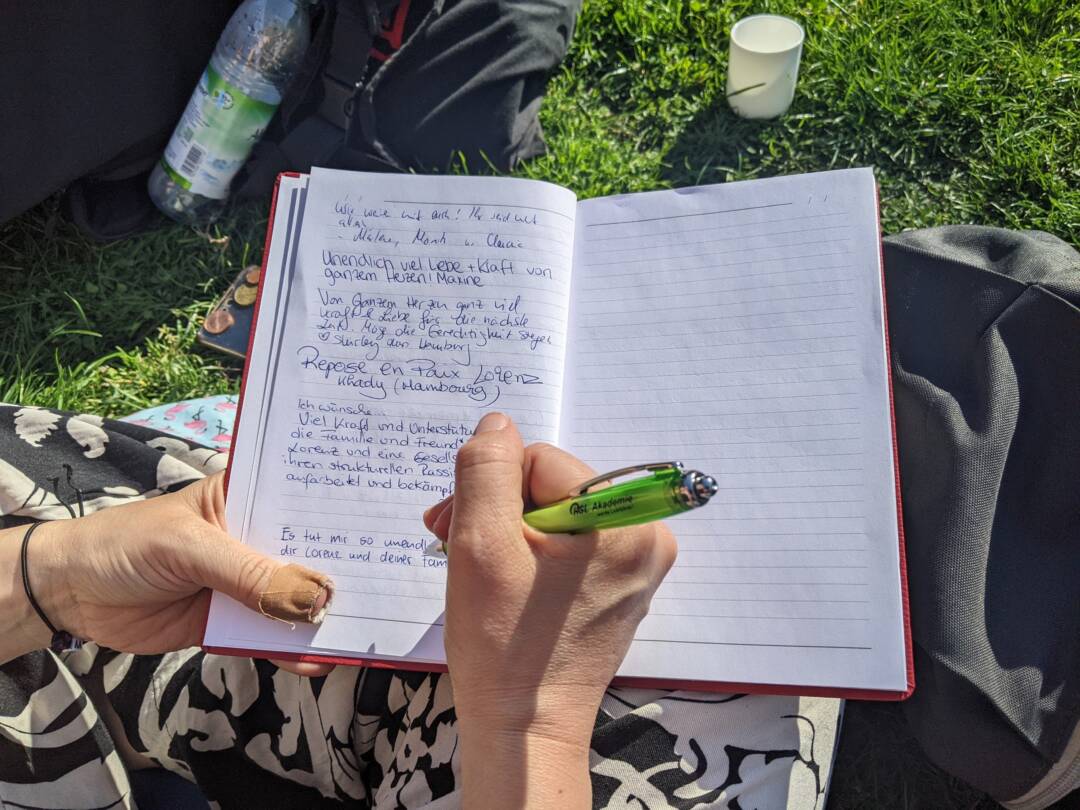 Wir weine mit euch! Ihr seid nicht
allein
Unendlich viel Liebe + Kraft von
ganzem Herzen! Maxine
Von Ganzem Herzen ganz viel
Kraft & Liebe für die nächste
Zeit. Möge die Gerechtigkeit siegen
♡ Shirley aus Hamburg
Repose en Paix Lorenz
Khady (Hambourg)
Ich wünsche
Viel Kraft und Unterstütu
die Familie und Freund
Lorenz und eine Gesells
ihren strukturellen Rassi
aufarbeitet und bekämpf
Es tut mir so unendl
dir Lorenz und deiner Fam
ASL Akademie